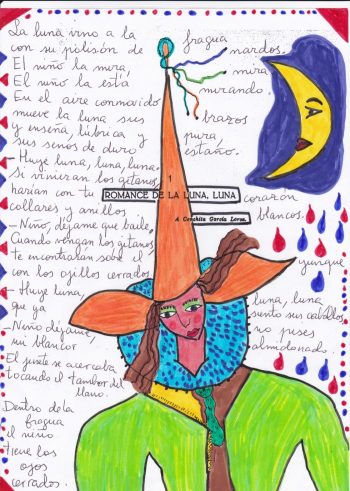 La luna vino a la fragua
con su polisón de nardos.
El niño la mira, mira
El niño la está mirando.
En el aire conmovido
mueve la luna sus brazos
y enseña, lúbrica y pura,
sus senos de duro estaño.
- Huye luna, luna, luna.
Si vinieran los gitanos,
1
ROMANCE DE LA LUNA, LUNA
A Conchita García Lorca.
harían con tu corazón
collares y anillos blancos.
- Niño, déjame que baile.
Cuando vengan los gitanos
te encontrarán sobre el yunque
con los ojillos cerrados.
- Huye luna, luna, luna,
que ya siento sus caballos
- Niño déjame, no pises
mi blancor almidonado.
El jinete se acercaba
tocando el tambor del
llano.
Dentro de la
fragua
el niño
tiene los
ojos
cerrados.